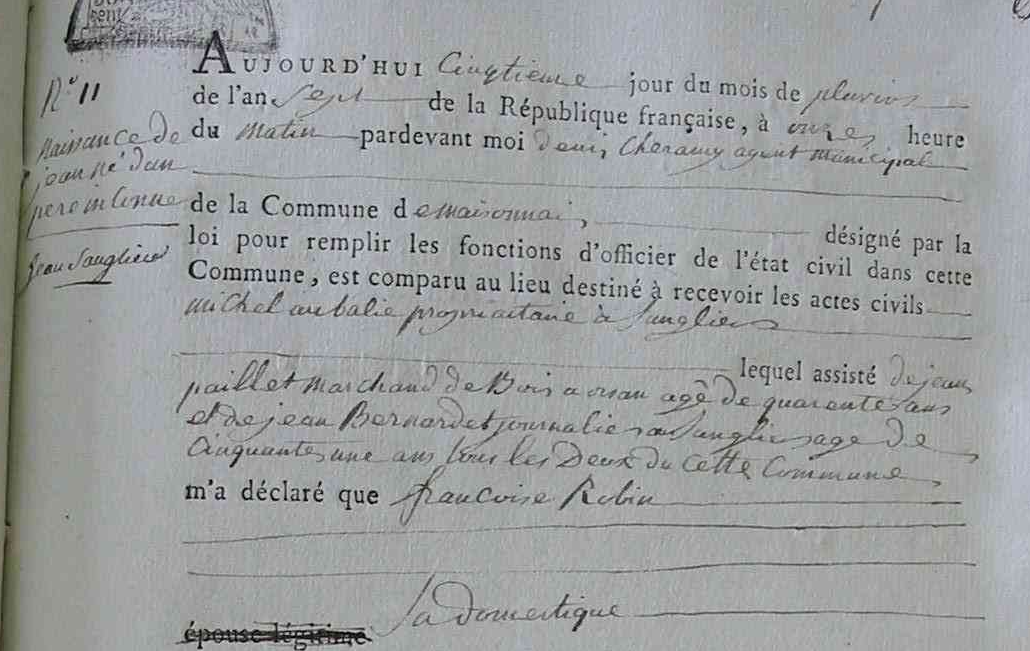 AUJOURD'HUI Cinqtieme jour du mois de pluvios
N° 11
de l'an Sept de la République française, à onzes heure
naissance de
du matin pardevant moi Denis Cheramy agent municipal
jean né d'un
pere inconnue
de la Commune demaisonnais, désigné par la
jean Sanglier
loi pour remplir les fonctions d'officier de l'état civil dans cette
Commune, est comparu au lieu destiné à recevoir les actes civils
michel aubalie propriaitaire à Sangliers
lequel assisté de jean
paillet marchand de Bois a orsan agé de quarente ans
et de jean Bernardet journalier au Sanglier age de
Cinquante une ans tous les Deux du Cette Commune
m'a déclaré que francoise Robin
épouse légitime Sa Domestique